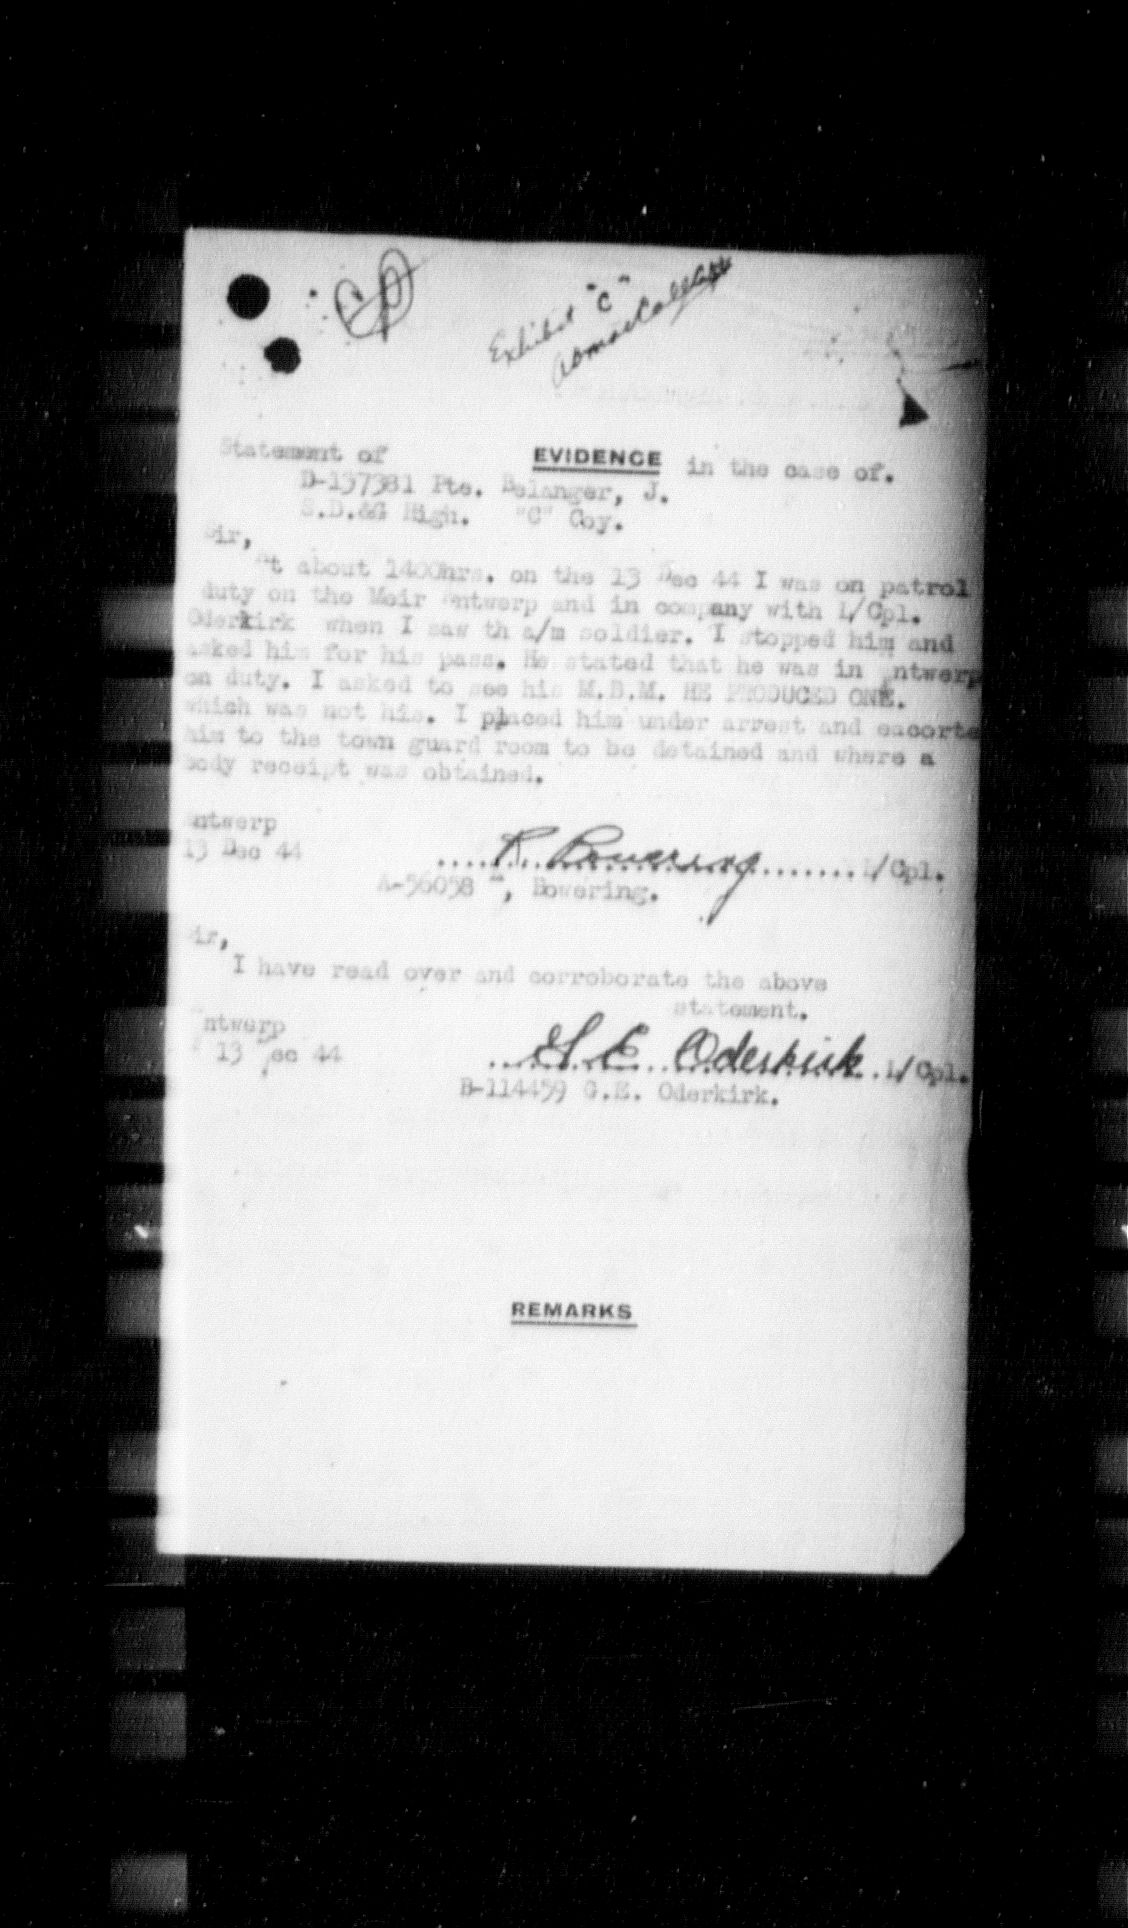 Exhibit "C"
Statement of EVIDENCE in the case of.
D-137381 Pte. Belanger, J.
S.D.&G High. "C" Coy.
Sir,
At about 1400hrs. on the 13 Dec 44 I was on patrol
duty on the Meir Antwerp and in company with L/Cpl.
Oderkirk when I saw th a/m soldier. I stopped him and
asked him for his pass. He stated that he was in Antwerp
on duty. I asked to see his M.B.M. HE PRODUCED ONE.
which was not his. I placed him under arrest and escorte
him to the town guard room to be detained and where a
body receipt was obtained.
Antwerp
13 Dec 44
....R. Bowering.......L/Cpl.
A-56058 , Bowering.
Sir,
I have read over and corroborate the above
statement.
Antwerp
13 Dec 44
..G. E. Oderkirk..L/Cpl.
B-114459 G.E. Oderkirk.
REMARKS